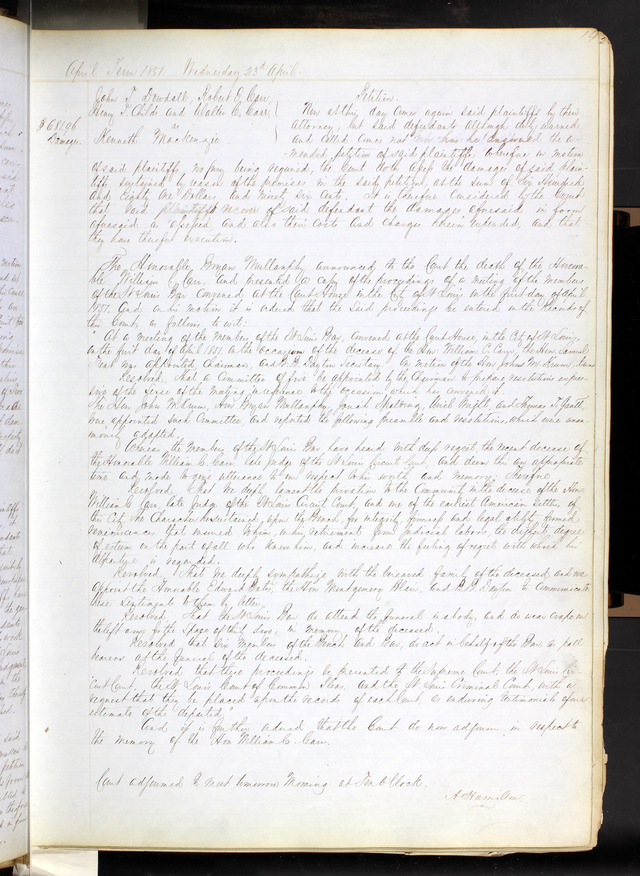 April Term 1851. Wednesday 23rd April.
John T. Dowdall, Robert E. Carr, Petition
Henry T. Childs and Walter C. Carr
$681.96 vs
Damages. Kenneth Mackenzie
Now at this day comes again said plaintiffs by their
Attorney, but said defendant although duly warned
and called comes not
petition of said plaintiffs, wherefore on motion
of said plaintiffs, no jury being required, the Court doth assess the damages of said plain-
tiffs sustained by reason of the premises in the said petition, at the sum of Six Hundred
and Eighty one Dollars and Ninety Six Cents. It is therefore considered by the Court
that said plaintiffs recover of said defendant the damages aforesaid in form
aforesaid assessed, and also their costs and charges herein expended, and that
they have thereof execution.
The Honorable Bryan Mullanphy announced to the Court the death of the Honora-
ble William C. Carr, and presented a copy of the proceedings of a meeting of the members
of the St Louis Bar convened at the Court House in the City of St Louis on the first day of April
1851. And on his motion it is ordered that the said proceedings be entered in the records of
this Court, as follows to wit:
At a meeting of the Members of the St Louis Bar, convened at the Court House, in the City of St Louis,
on the first day of April 1851. on the occasion of the decease of the Hon. William C. Carr, the Hon. Samuel
Treat was appointed Chairman, and B. F. Dayton Secretary. On motion of the Hon. John M. Krum,
Resolved, That a Committee of five be appointed by the Chairman to prepare resolutions expres-
sive of the sense of the meeting in reference to the occasion which has convened it.
The Hon. John M. Krum, Hon. Bryan Mullanphy, Josiah Spalding, Uriel Wright and Thomas T. Gantt,
were appointed such Committee and reported the following preamble and resolutions, which were unani-
mously adopted.
Whereas the Members of the St Louis Bar have heard with deep regret the recent decease of
the Honorable William C. Carr, late Judge of the St Louis Circuit Court, and deem this an appropriate
time and mode to give utterance to our respect to his worth and memory. Therefore
Resolved, That we deeply lament the privation to the Community in the decease of the Hon.
William C. Carr, late Judge of the St Louis Circuit Court, and one of the earliest American settlers of
this City. The Character he sustained upon the Bench, for integrity, firmness and legal ability, formed
reminiscences that insured to him, in his retirement from judicial labors the highest degree
of esteem on the part of all who knew him, and increase the feeling of regret with which his
departure is regarded.
Resolved That we deeply sympathize with the bereaved family of the deceased and we
appoint the Honorable Edward Bates, the Hon. Montgomery Blair, and B. F. Dayton to communicate
these sentiments to them by letter.
Resolved, That the St Louis Bar do attend the funeral in a body, and do wear crape on
the left arm for the space of thirty days, in memory of the deceased.
Resolved that Six Members of the Bench and Bar, do act in behalf of the Bar as pall
bearers at the funeral of the deceased.
Resolved that these proceedings be presented to the Supreme Court, the St Louis Cir-
cuit Court, the St Louis Court of Common Pleas, and the St Louis Criminal Court, with a
request that they be placed upon the records of each Court, as enduring testimonials of our
estimate of the departed."
And it is further ordered that the Court do now adjourn in respect to
the memory of the Hon. William C. Carr.
Court adjourned to meet tomorrow Morning at Ten O'Clock.
A. Hamilton